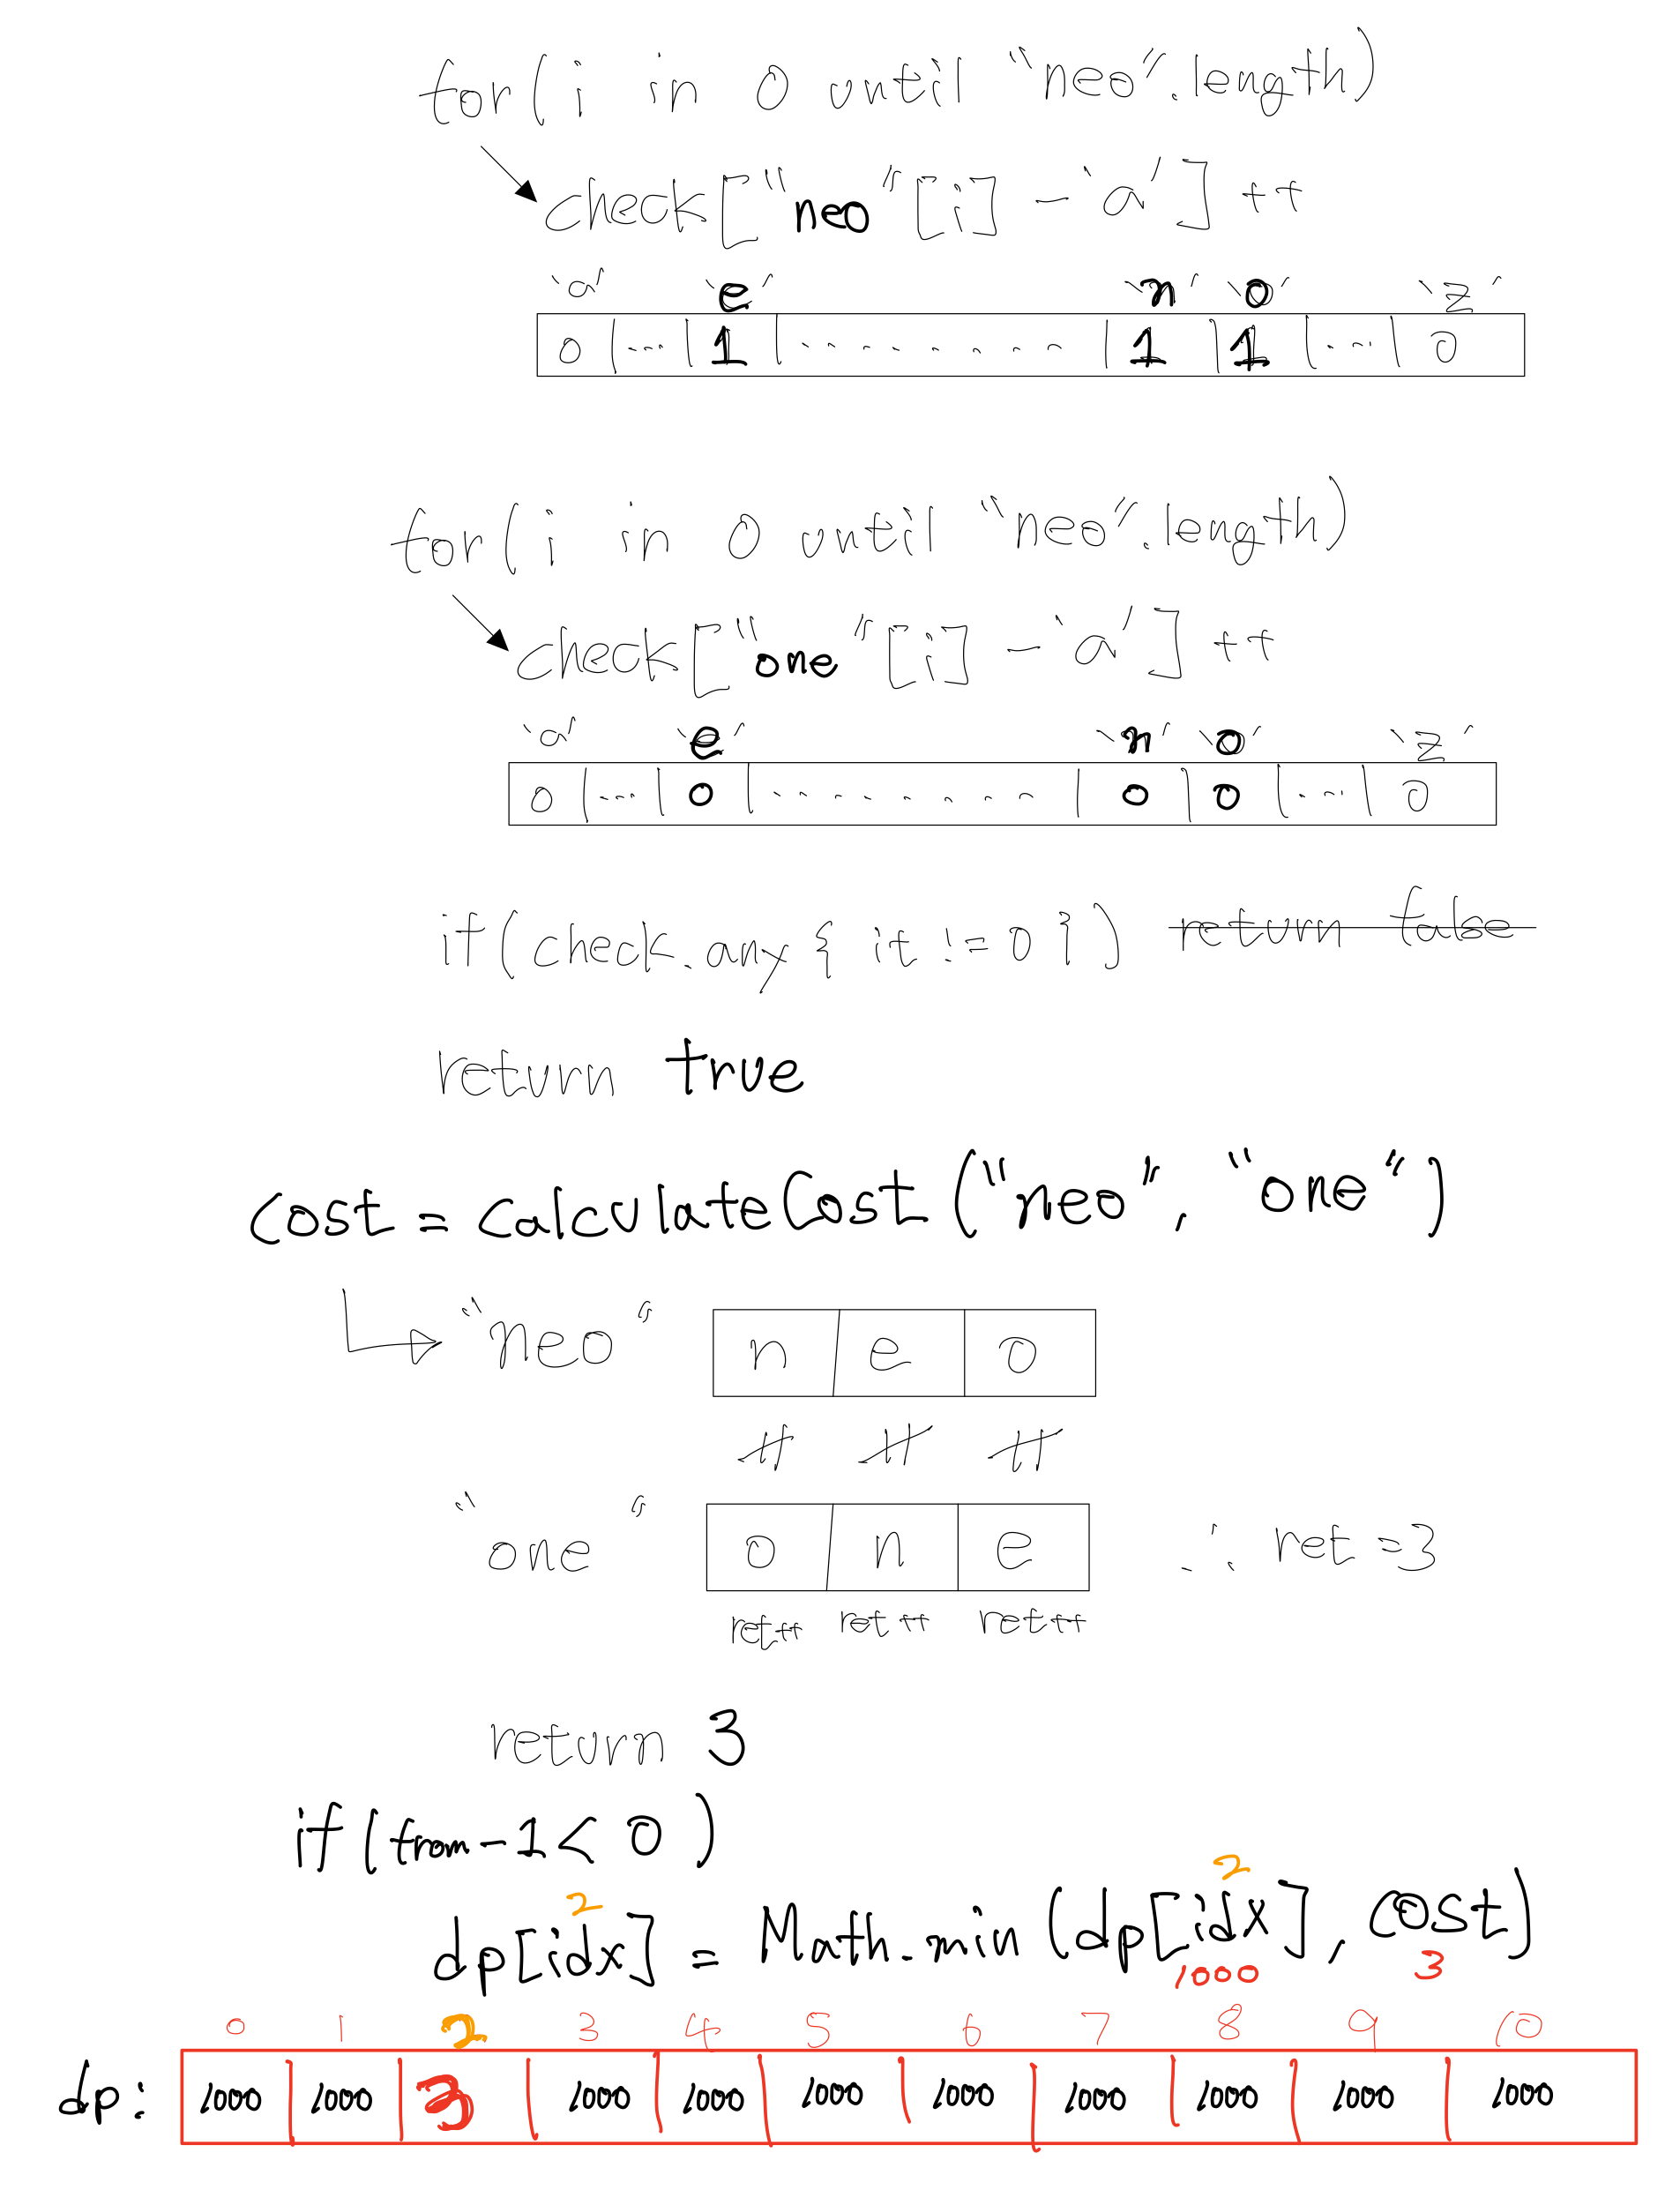 for(i in 0 until "neo".length)
check["neo"[i] - 'a']++
'a' 'e' 'n' 'o' 'z'
0 ... 1 ........ 1 1 ... 0
for(i in 0 until "neo".length)
check["one"[i] - 'a']++
'a' 'e' 'n' 'o' 'z'
0 ... 0 ........ 0 0 ... 0
if(check.any { it != 0 }) return false
return true
cost = calculateCost("neo", "one")
"neo" n e o
≠ ≠ ≠
"one" o n e ∴ ret = 3
ret++ ret++ ret++
return 3
if(from-1 < 0)
2 2
dp[idx] = Math.min(dp[idx], cost)
1000 3
0 1 2 3 4 5 6 7 8 9 10
dp: 1000 1000 3 1000 1000 1000 1000 1000 1000 1000 1000